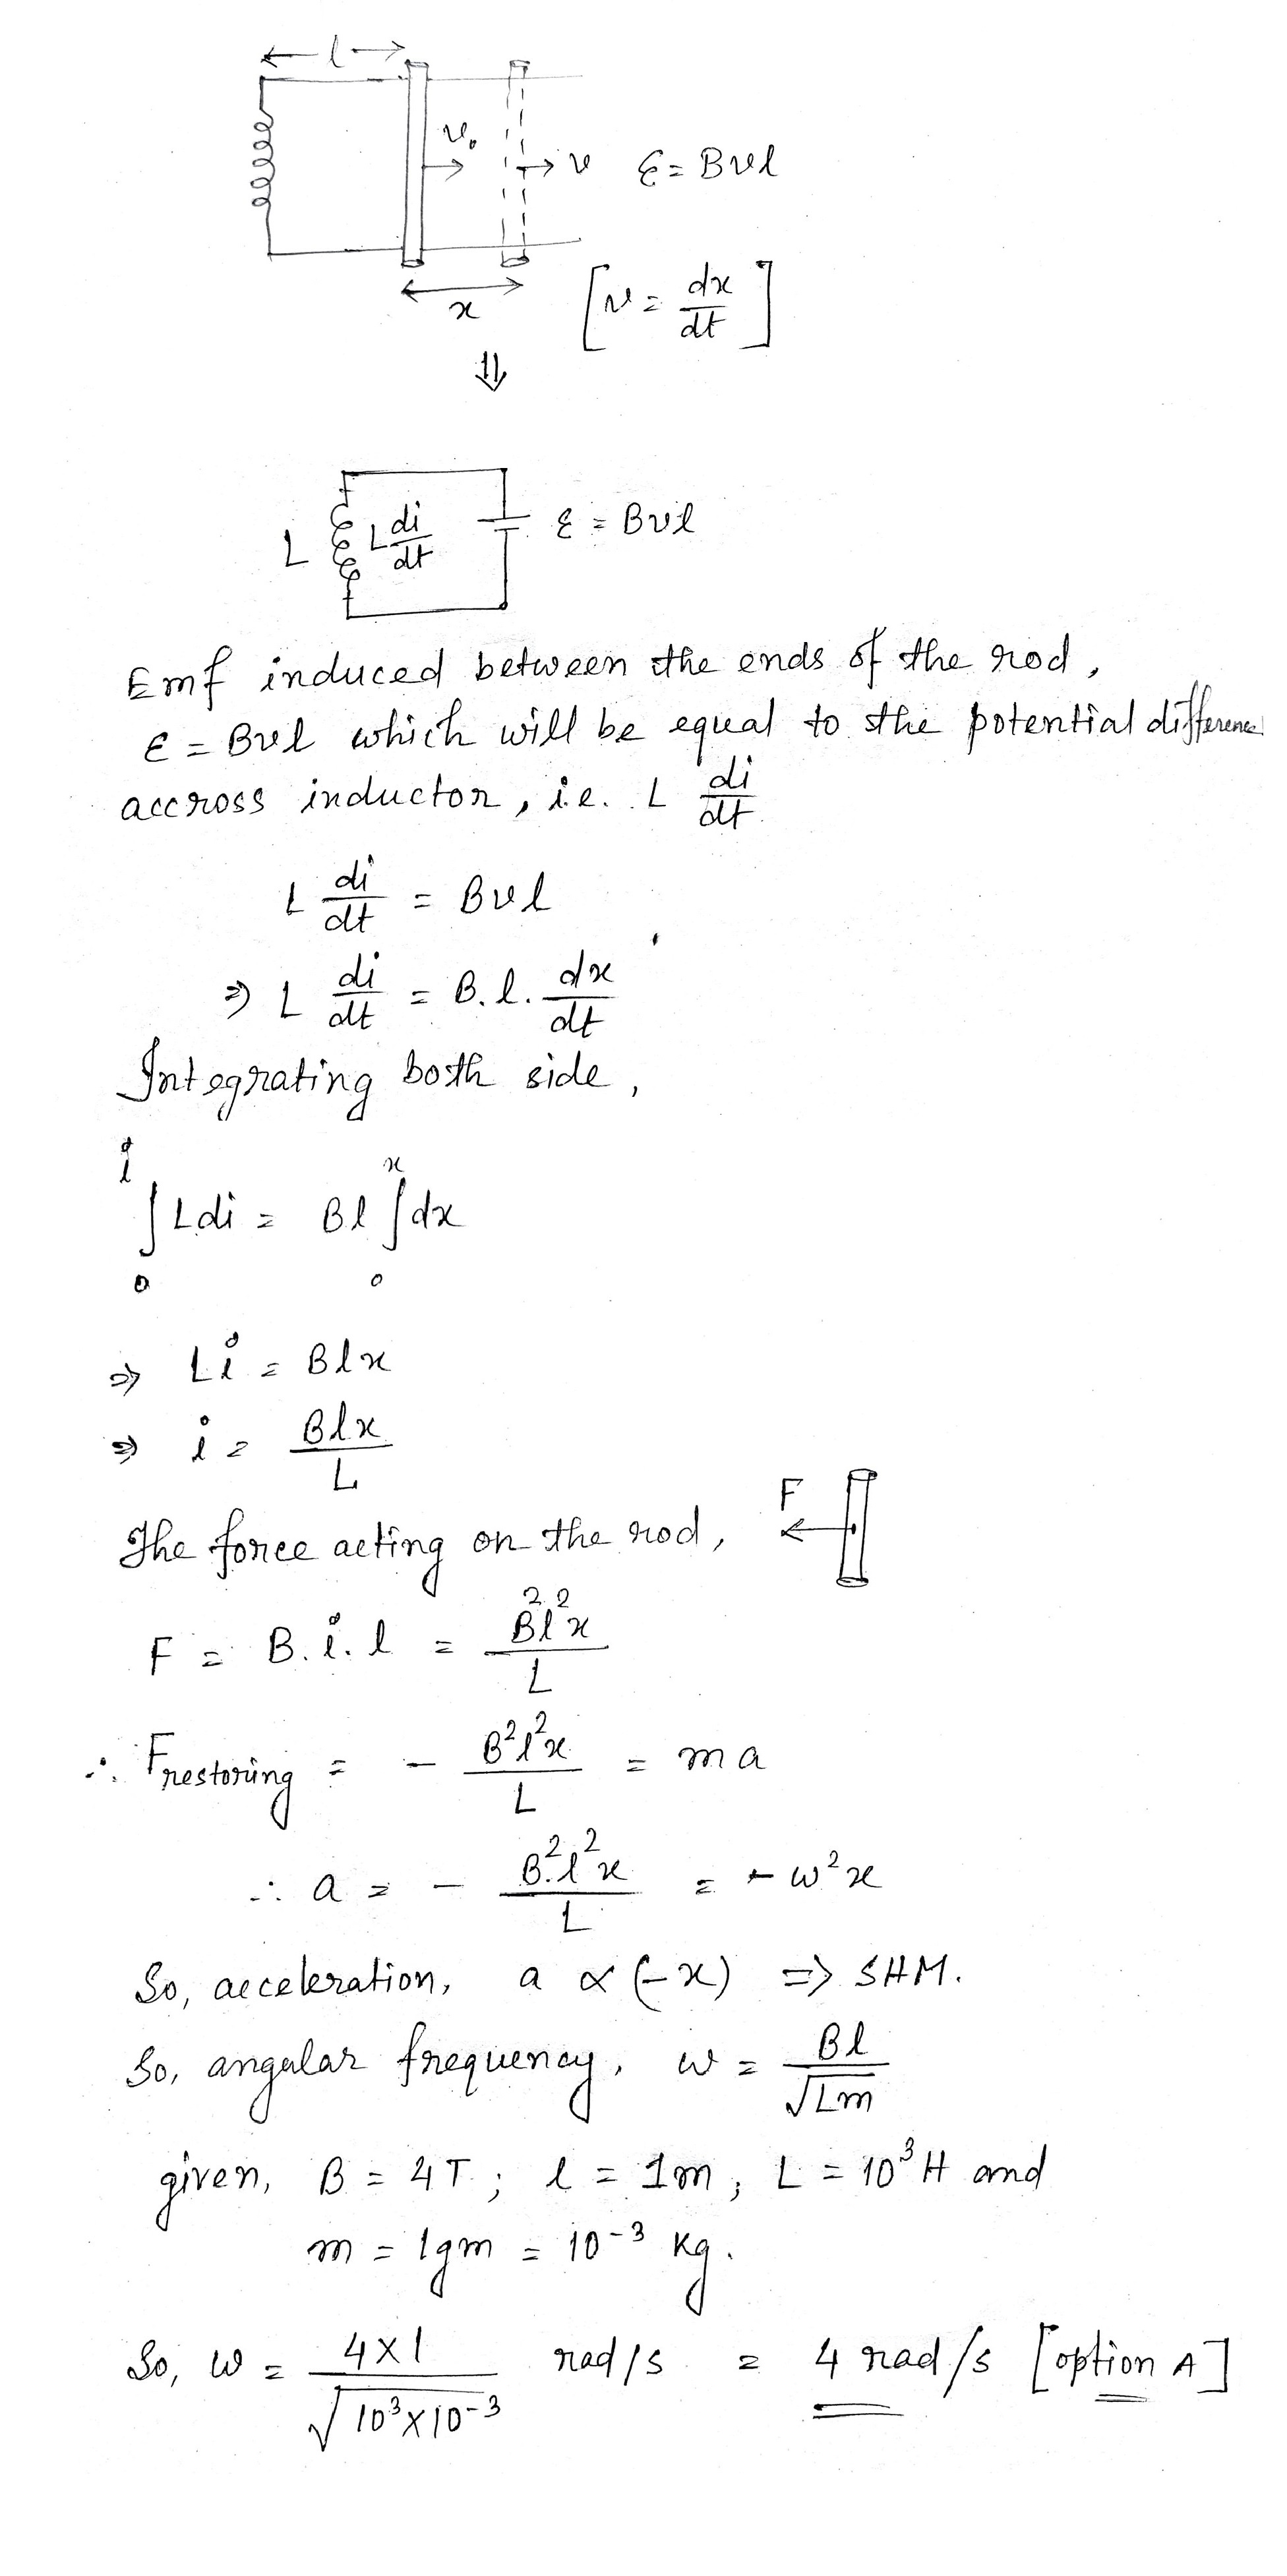 l
v₀ v ε = Bvl
x [v = dx/dt]
⇓
L L di/dt ε = Bvl
Emf induced between the ends of the rod,
ε = Bvl which will be equal to the potential difference
accross inductor, i.e. L di/dt
L di/dt = Bvl
⇒ L di/dt = B.l. dx/dt
Integrating both side,
∫₀ⁱ Ldi = Bl ∫₀ˣ dx
⇒ Li = Blx
⇒ i = Blx/L
The force acting on the rod, F
F = B.i.l = B²l²x/L
∴ Frestoring = - B²l²x/L = ma
∴ a = - B².l²x/L = - ω²x
So, acceleration, a ∝ (-x) ⇒ SHM.
So, angular frequency, ω = Bl/√Lm
given, B = 4T ; l = 1m, L = 10³ H and
m = 1gm = 10⁻³ kg.
So, ω = 4×1/√10³×10⁻³ rad/s = 4 rad/s [option A]